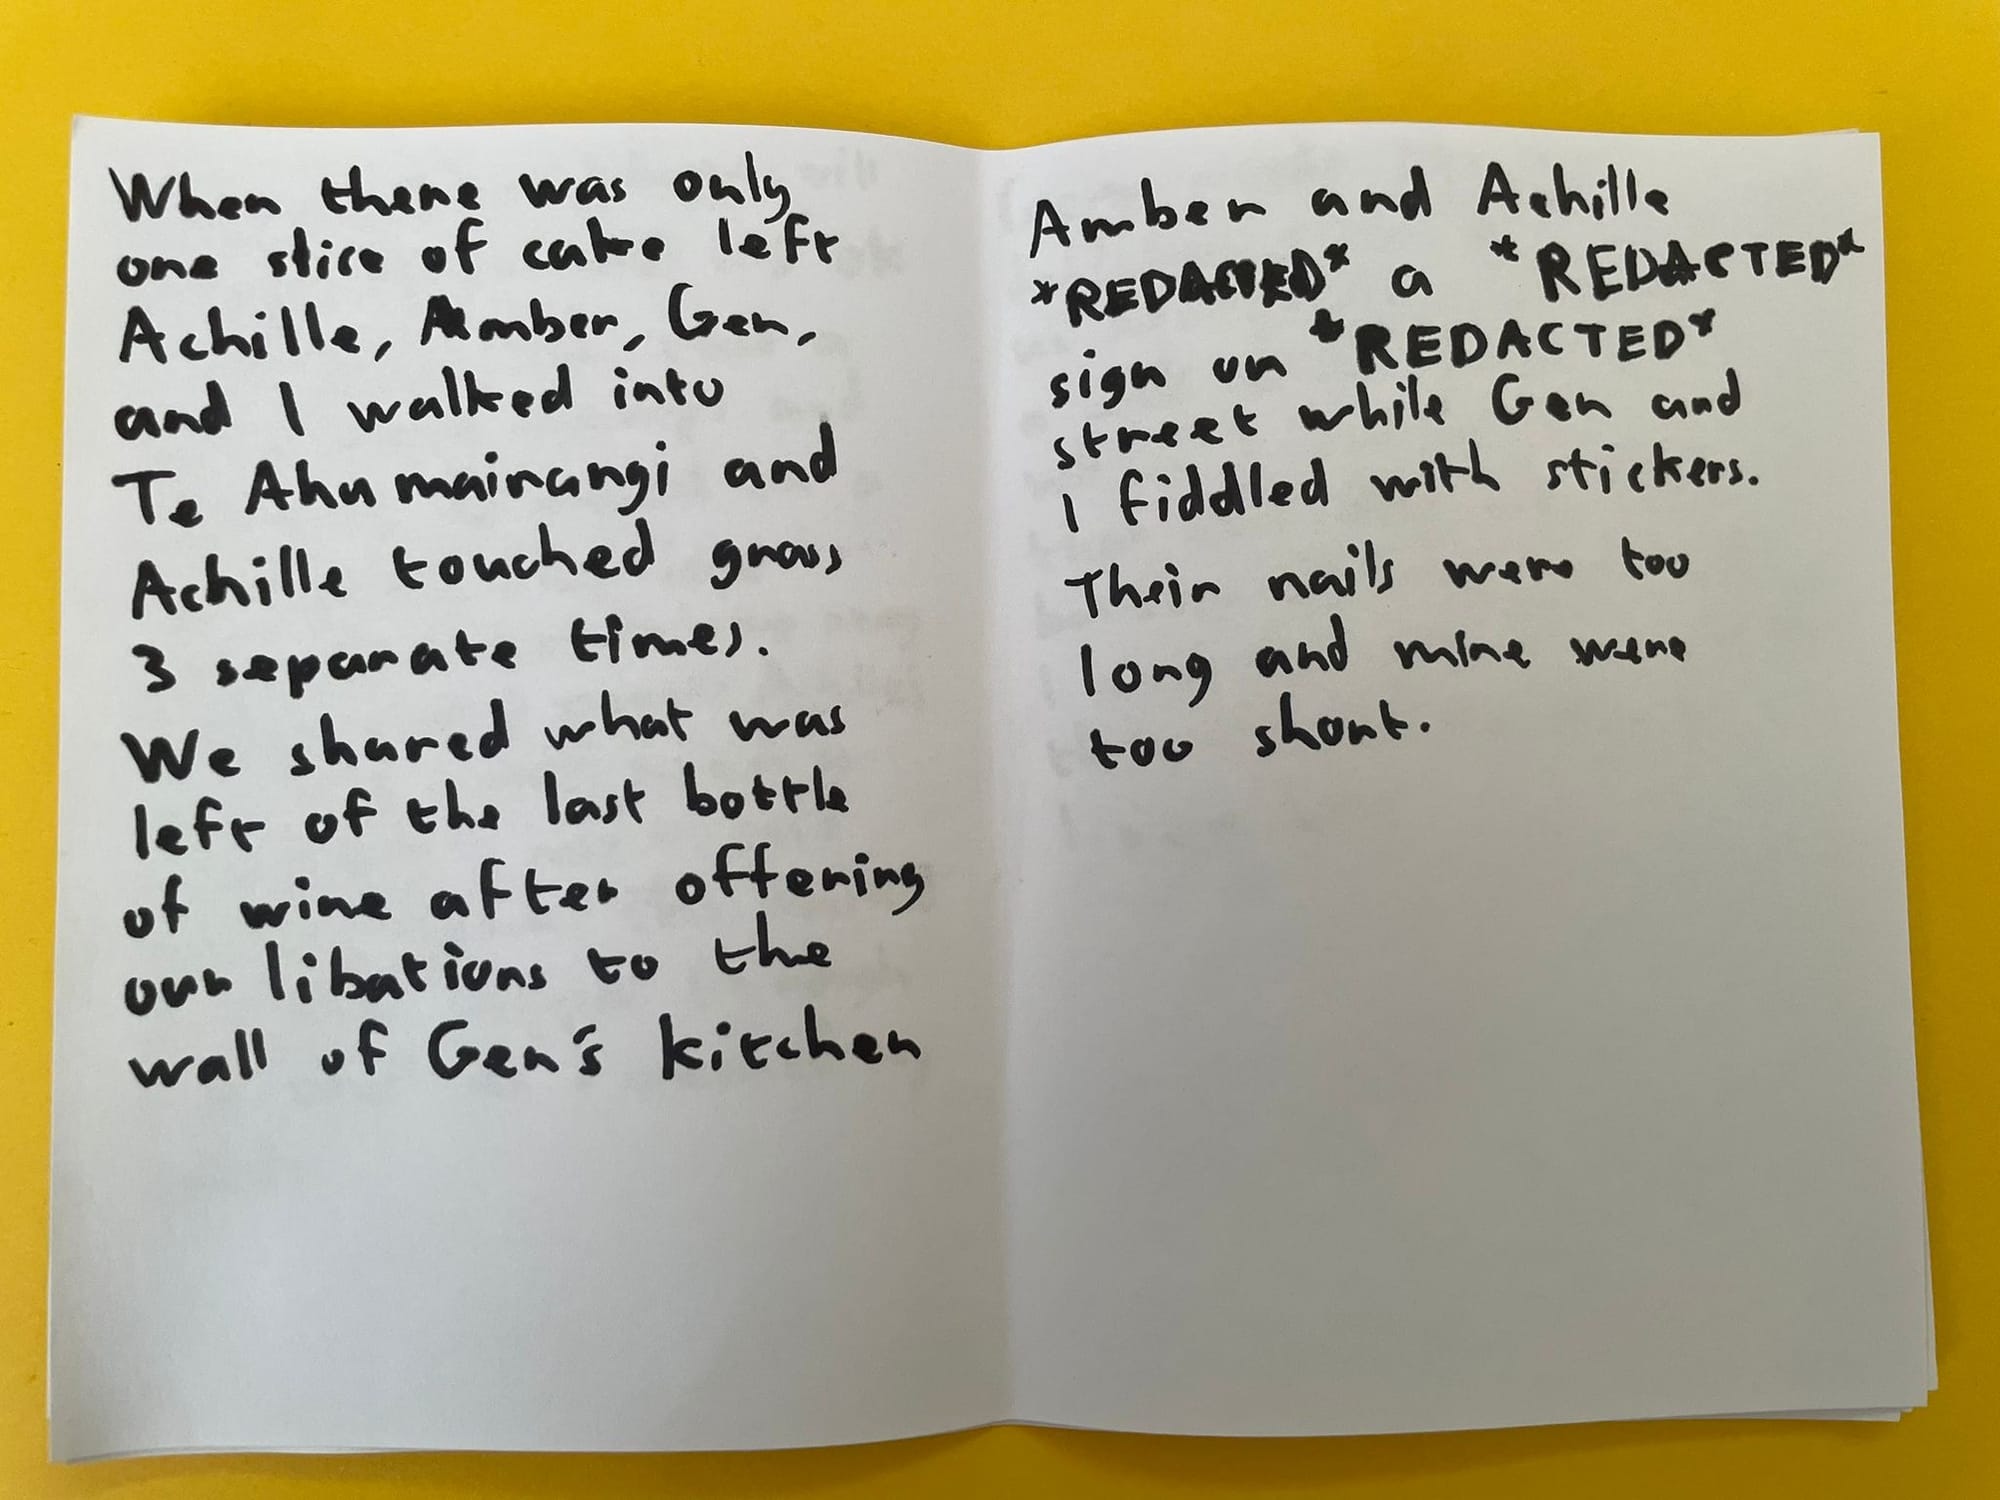 When there was only
one slice of cake left
Achille, Amber, Gen,
and I walked into
Te Ahumairangi and
Achille touched grass
3 separate times.
We shared what was
left of the last bottle
of wine after offering
our libations to the
wall of Gen's kitchen
Amber and Achille
*REDACTED* a *REDACTED*
sign on *REDACTED*
street while Gen and
I fiddled with stickers.
Their nails were too
long and mine were
too short.